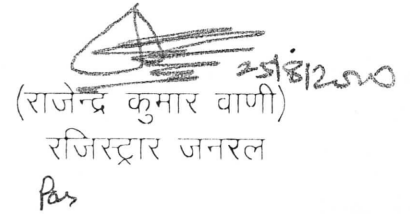 25/8/2020
(राजेन्द्र कुमार वाणी)
रजिस्ट्रार जनरल